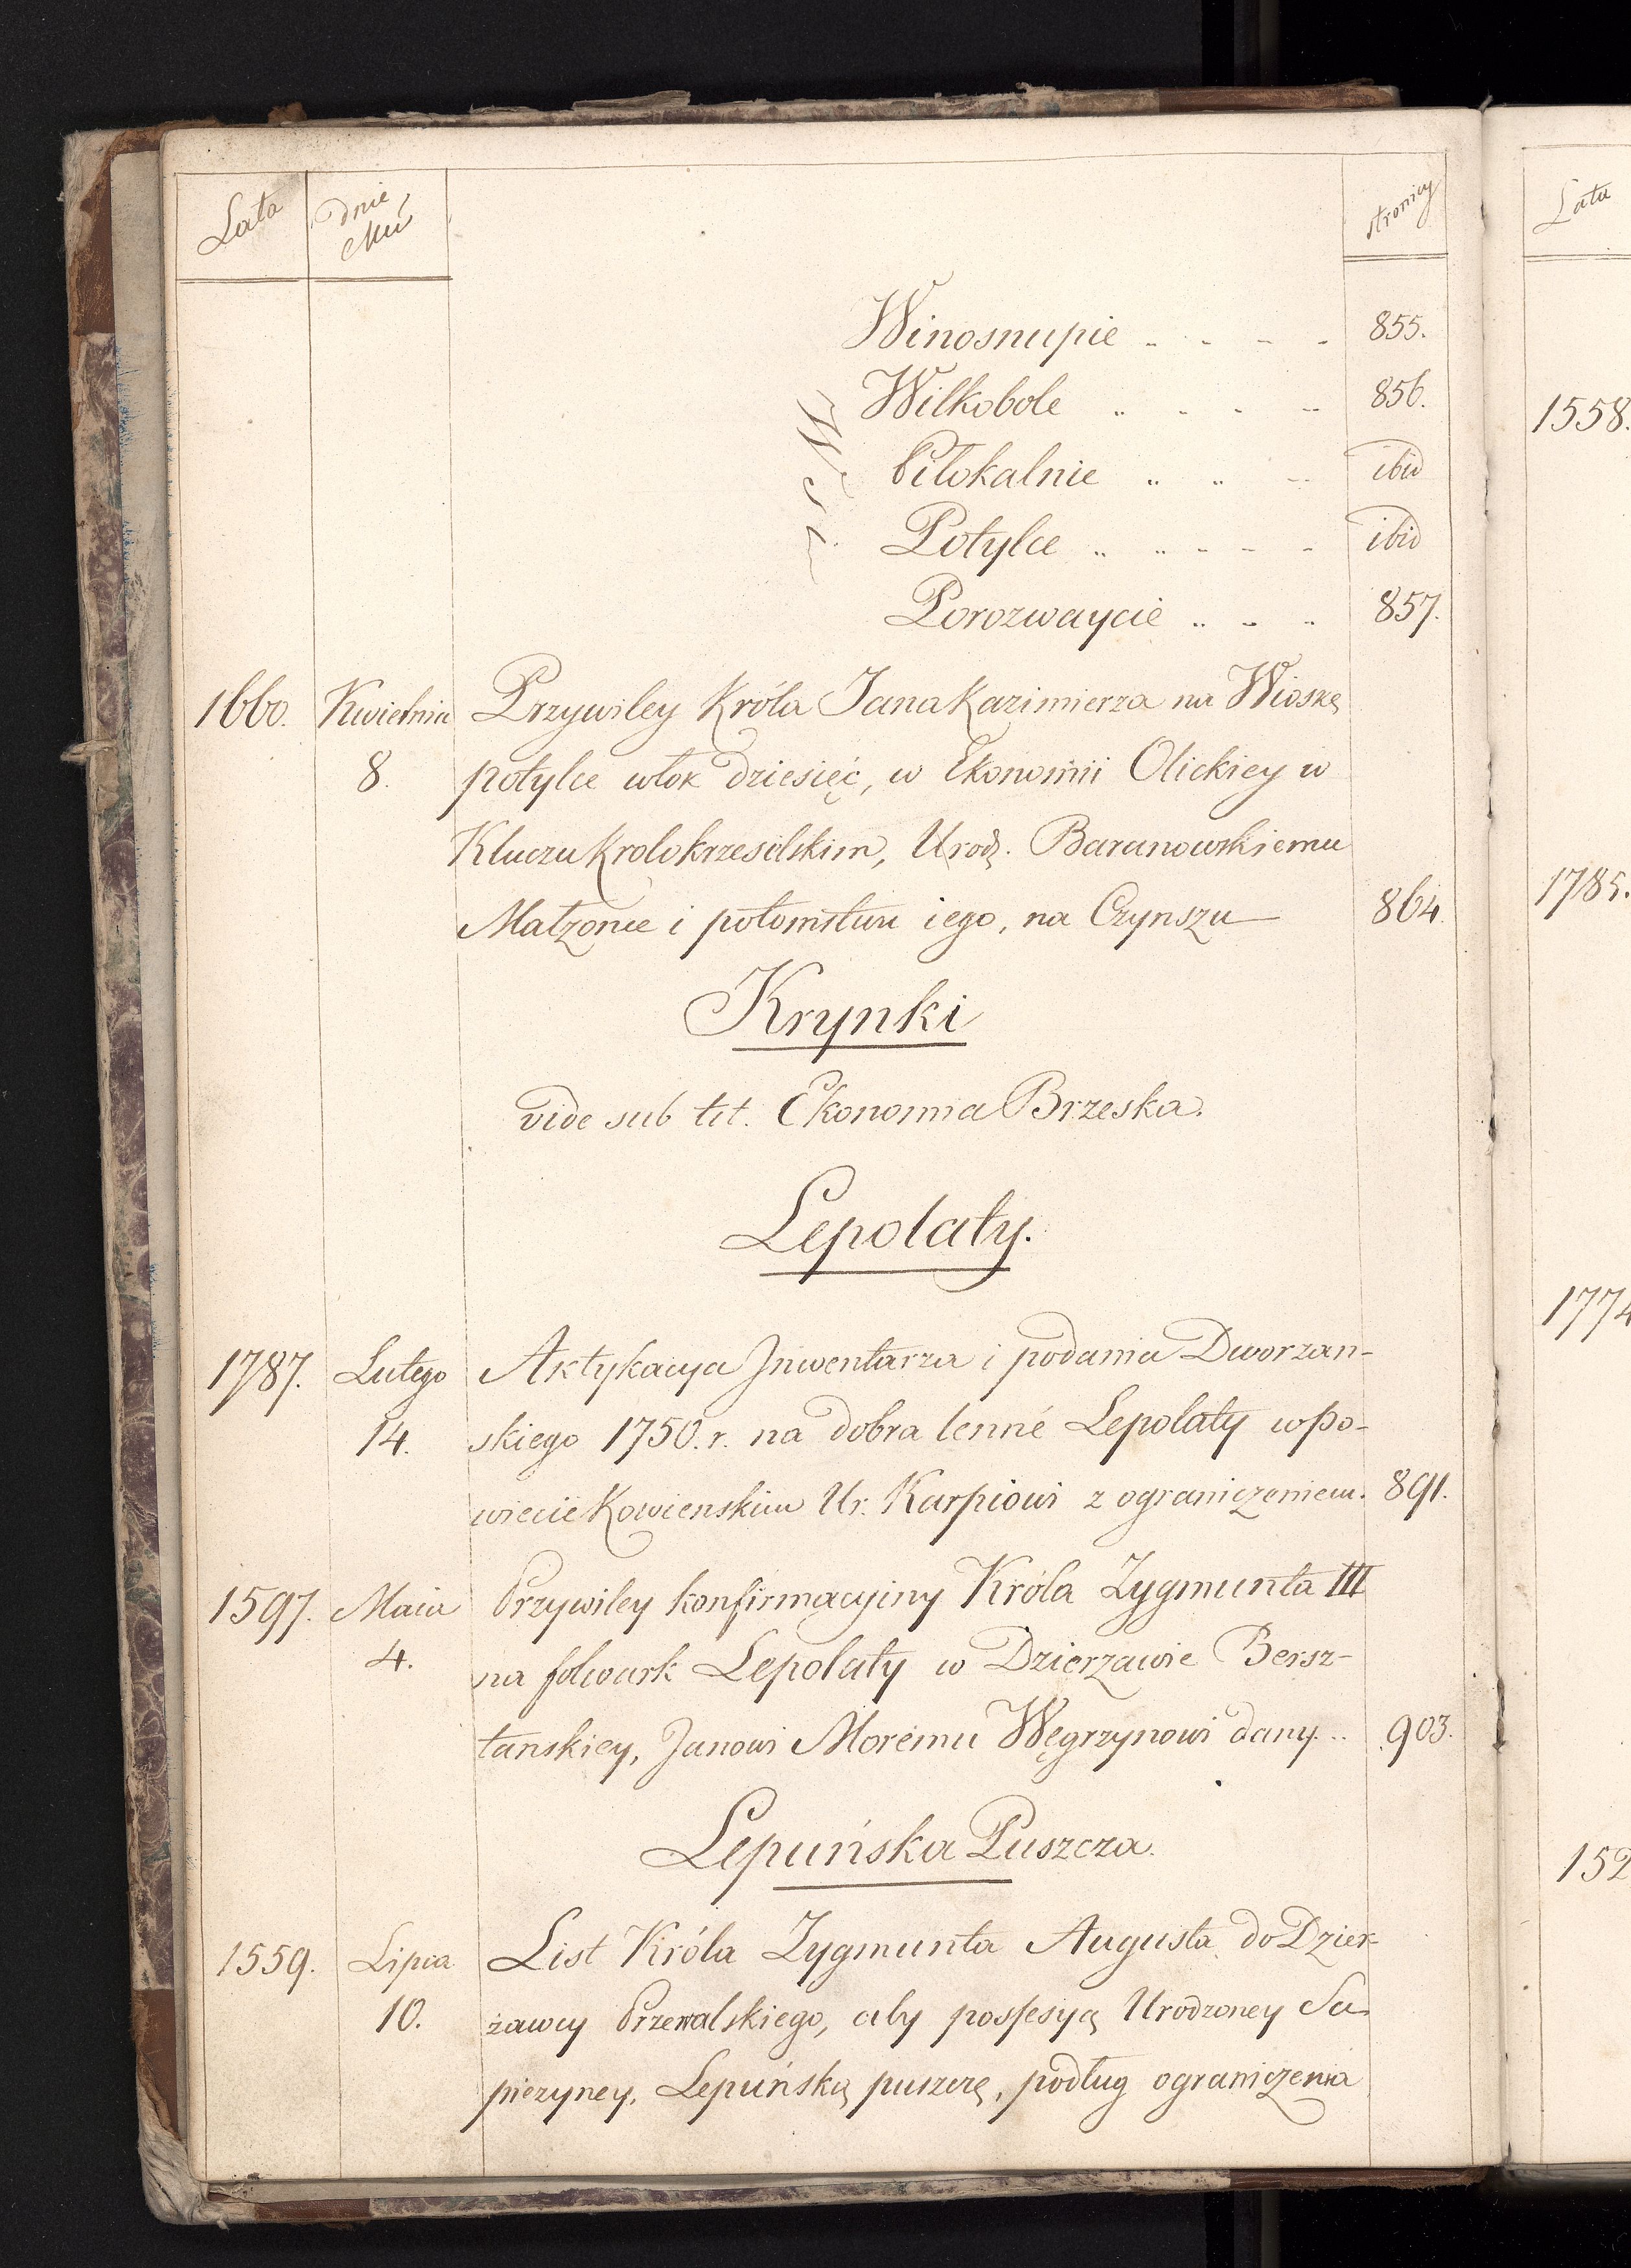 Lata dnie stronicy
Winosnupie 855.
Wilkobole 856.
Wsi
Piłokalnie ibid
Potylce ibid
Porozwaycie 857.
1660. Kwietnia Przywiley Króla Jana Kazimierza na Wioskę
8. potylce włok dziesięć, w Ekonomii Olickiey w
Kluczu Krolokrzeselskim, Urodz. Baranowskiemu
Małżonce i potomstwu iego, na Czynszu 864.
Krynki
vide sub tit. Ekonomia Brzeska.
Lepolaty.
1787. Lutego Aktykacya Inwentarza i podania Dworzan-
14. skiego 1750. r. na dobra lenne Lepolaty w Po-
wiecie Kowienskim Ur. Karpiowi z ograniczeniem. 891.
1597. Maia Przywiley konfirmacyjny Króla Zygmunta III
4. na folwark Lepolaty w Dzierżawie Bersz-
tanskiey, Janowi Moremu Węgrzynowi dany... 903.
Lepuńska Puszcza.
1559. Lipca List Króla Zygmunta Augusta do Dzier-
10. żawcy Przewalskiego, aby possesyą Urodzoney Sa-
piezyney, Lepuńską puszczę, podług ograniczenia
Lata
1558.
1785.
1774
152